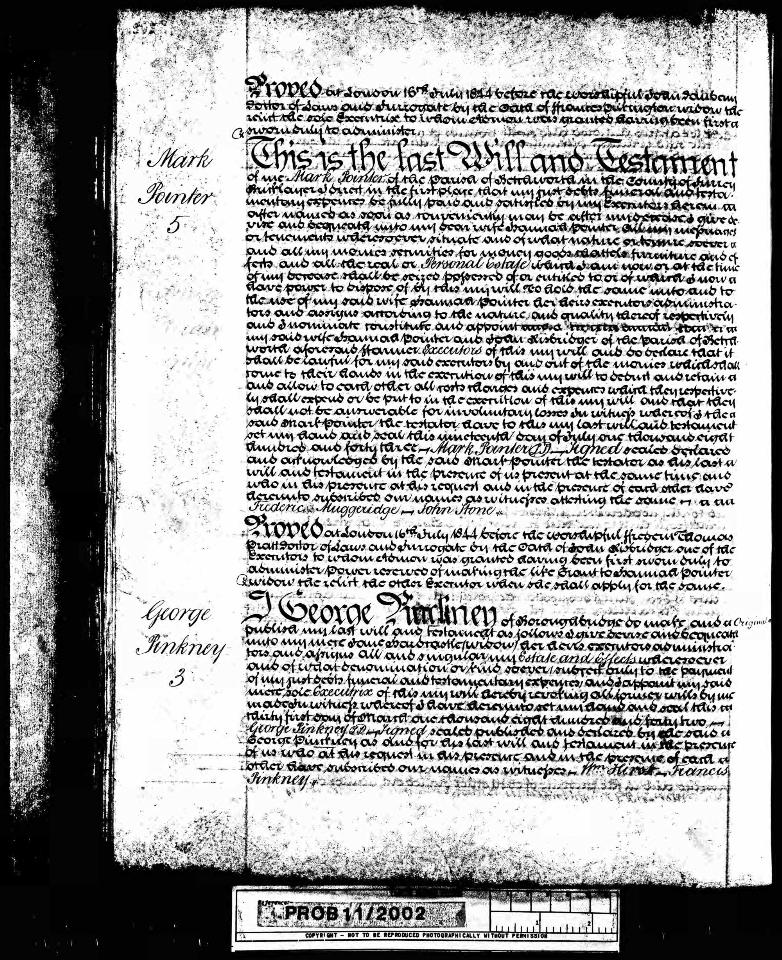 Proved at London 16th July 1844 before the worshipful John Daubeny
Doctor of Laws and Surrogate by the Oath of Frances Puttington widow the
relict the sole Executrix to whom Admon was granted having been first
sworn duly to administer.
Mark
Pointer
5
This is the last Will and Testament
of me Mark Pointer of the Parish of Betchworth in the County of Surrey
I direct in the first place that my just debts funeral and testa
mentary expences be fully paid and satisfied by my Executors herein
after named as soon as conveniently may be after my decease I give de
vise and bequeath unto my dear wife Hannah Pointer all my messuages
or tenements wheresoever situate and of what nature or tenure soever
and all my monies securities for money goods chattels furniture and ef
fects and all the real or Personal Estate which I am now or at the time
of my decease shall be seized possessed of or entitled to or of which I now
have power to dispose of by this my will To hold the same unto and to
the use of my said wife Hannah Pointer her heirs executors administra
tors and assigns according to the nature and quality thereof respectively
and I nominate constitute and appoint
my said wife Hannah Pointer and John Lisbridger of the parish of Betch
worth aforesaid ffarmer Executors of this my will and do declare that it
shall be lawful for my executors by and out of the monies which shall
come to their hands in the execution of this my will to deduct and retain
and allow to each other all costs charges and expences which they respective
ly shall expend or be put to in the execution of this my will and that they
shall not be answerable for involuntary losses In witness whereof I the
said Mark Pointer the testator have to this my last will and testament
set my hand and seal this nineteenth day of July one thousand eight
hundred and forty three – Mark Pointer – Signed sealed declared
and acknowledged by the said Mark Pointer the testator as his last
will and testament in the presence of us present at the same time and
who in his presence at his request and in the presence of each other have
hereunto subscribed our names as witnesses attesting the same
Frederic Muggeridge – John Stone.
Proved at London 16th July 1844 before the worshipful ffrederic Thomas
Pratt Doctor of Laws and Surrogate by the Oath of John Lisbridger one of the
Executors to whom Admon was granted having been first sworn duly to
administer Power reserved of making the like Grant to Hannah Pointer
widow the relict the other Executor when she shall apply for the same.
George
Pinkney
3
I George Pinckney of Boroughbridge do make and Original
publish my last will and testament as follows I give devise and bequeath
unto my niece Jane Hardcastle (widow) her heirs executors administra
tors and assigns all and singular my Estate and Effects wheresoever
and of what denomination or kind soever subject duly to the payment
of my just debts funeral and testamentary expences and I appoint my said
niece sole Executrix of this my will hereby revoking all former wills by me
made In witness whereof I have hereunto set my hand and seal this
thirty first day of March one thousand eight hundred and forty two
George Pinkney – Signed sealed published and declared by the said
George Pinkney as and for his last will and testament in the presence
of us who at his request in his presence and in the presence of each
other have subscribed our names as witnesses – Wm Hirst – Francis
Pinkney.
PROB 11/2002
COPYRIGHT – NOT TO BE REPRODUCED PHOTOGRAPHICALLY WITHOUT PERMISSION